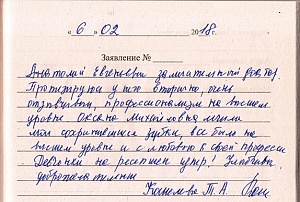 « 6 » 02 2018 г.
Заявление №
Анатолий Евгеньевич замечательный доктор.
Протезируюсь у него вторично, очень
отзывчивый, профессионализм на высшем
уровне Оксана Михайловна лечила
мои зубы, все было на
высшем уровне и с любовью к своей профессии
Девчонки на ресепшен супер! Улыбчивые,
доброжелательные
Т. А.